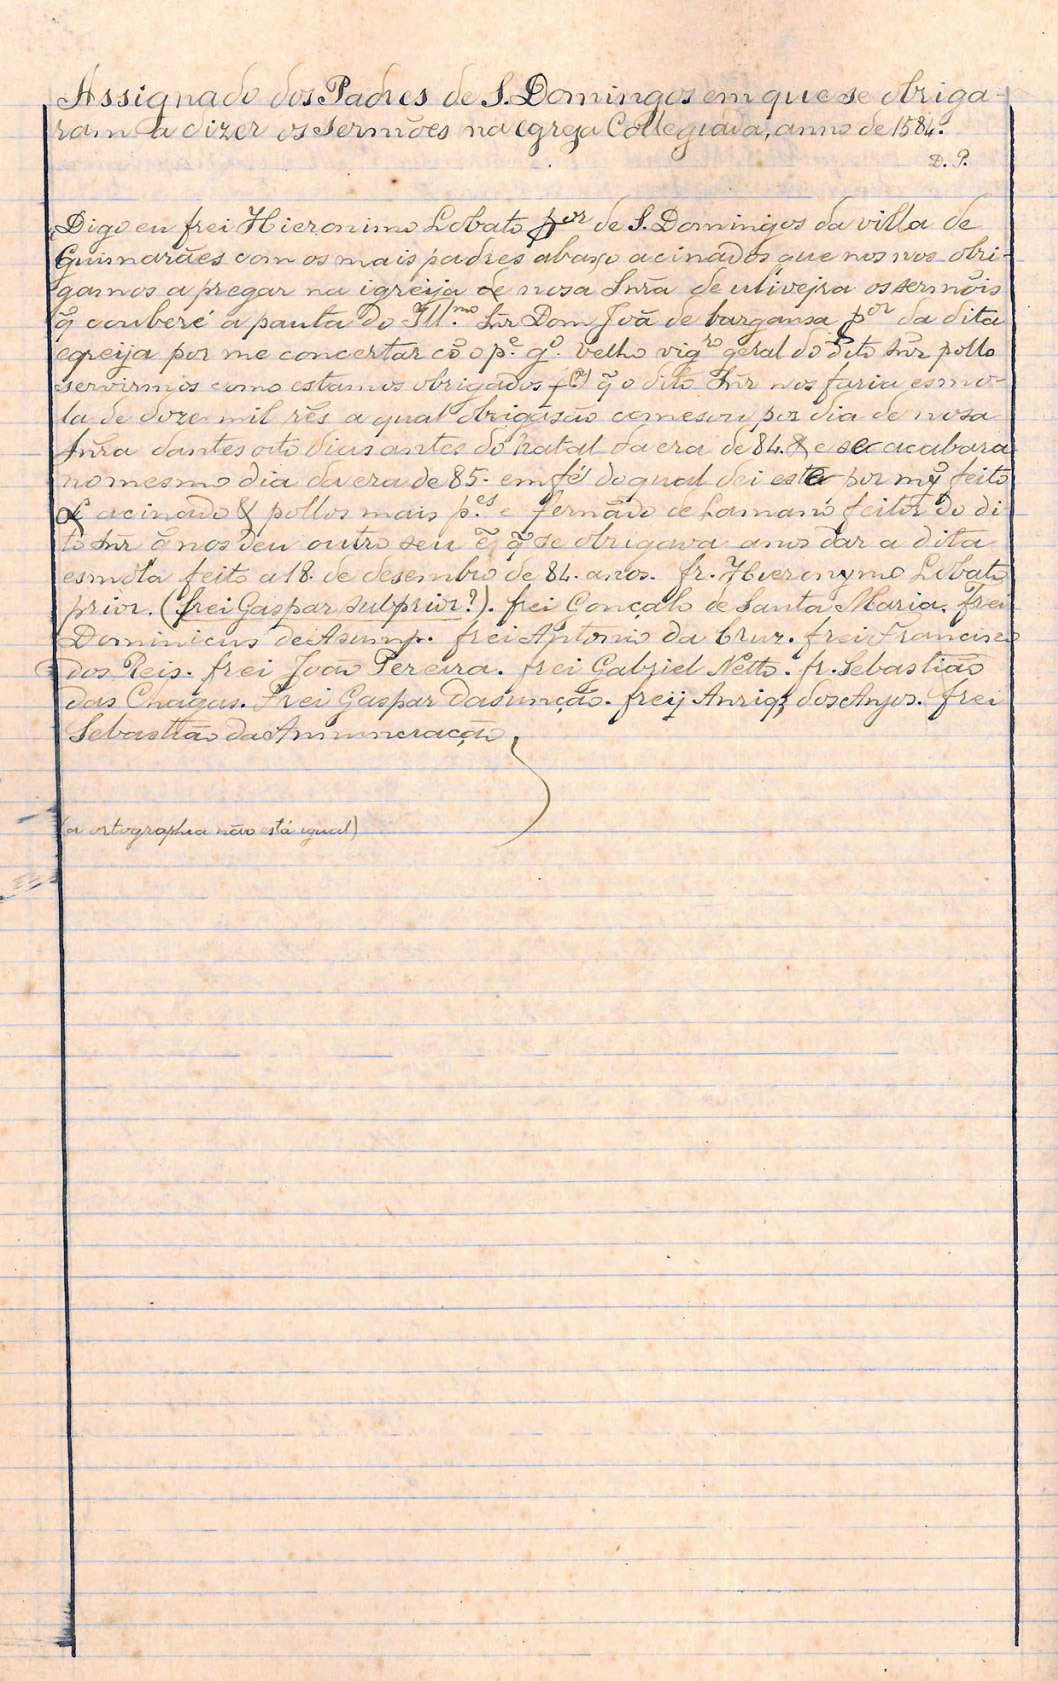 Assignado dos Padres de S. Domingos em que se obriga-
ram a dizer os sermões na egreja Collegiada, anno de 1584.
D. P.
Digo eu frei Hieronimo Lobato por de S. Domingos da villa de
Guimarães com os mais padres abaxo acinados que nos nos obri-
gamos a pregar na igreija de nosa Snra de ulivejra os sermõis
q̃ couberẽ a pauta do Ill.mo Snr Dom Joã de bargansa por da dita
egreija por me concertar cõ o p.e g.o velho vig.ro geral do dito Snr pollo
servirmos como estamos obrigados q̃ o dito Snr nos faria esmo-
la de doze mil rẽs a qual obrigasão comesou por dia de nosa
Snra dantes oito dias antes do natal da era de 84. & e se acabara
no mesmo dia da era de 85. em fé do qual dei este por mỹ feito
& acinado & pollos mais p.es e fernãdo de Lamano feitor do di-
to Snr q̃ nos deu outro seu ẽ q̃ se obrigava a nos dar a dita
esmola feito a 18. de desembro de 84. anos. fr. Hieronymo Lobato
prior. (frei Gaspar subprior?). frei Conçalo de Santa Maria. frei
Dominicus de Asump. frei Antonio da Cruz. frei Francisco
dos Reis. frei João Pereira. frei Gabriel Netto. fr. Sebastião
das Chagas. Frei Gaspar Dasunção. freij Anriq̃ dos Anjos. frei
Sebastião da Annuncração.
(a ortographia não está igual)